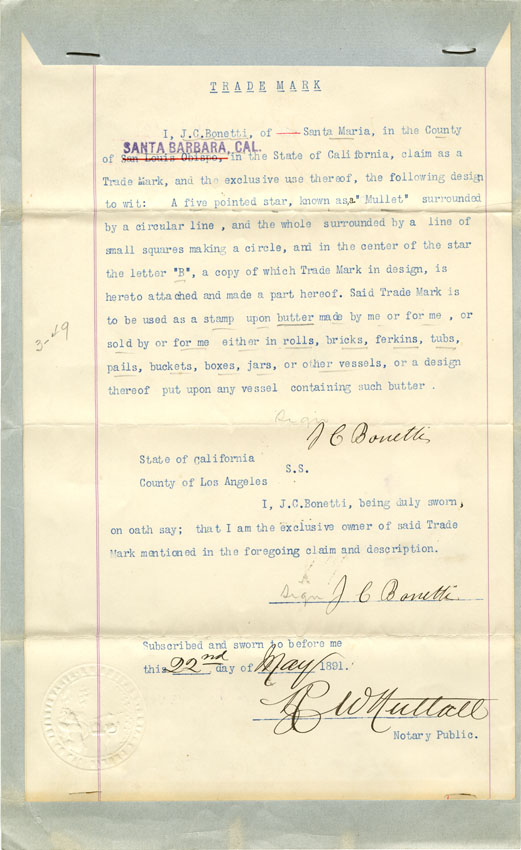 TRADE MARK
I, J.C.Bonetti, of Santa Maria, in the County
SANTA BARBARA, CAL.
of San Louis Obispo, in the State of California, claim as a
Trade Mark, and the exclusive use thereof, the following design
to wit: A five pointed star, known as,a" Mullet" surrounded
by a circular line , and the whole surrounded by a line of
small squares making a circle, and in the center of the star
the letter "B", a copy of which Trade Mark in design, is
hereto attached and made a part hereof. Said Trade Mark is
to be used as a stamp upon butter made by me or for me , or
sold by or for me either in rolls, bricks, ferkins, tubs,
pails, buckets, boxes, jars, or other vessels, or a design
thereof put upon any vessel containing such butter .
3-49
Sign
J C Bonetti
State of California
S.S.
County of Los Angeles
I, J.C.Bonetti, being duly sworn,
on oath say; that I am the exclusive owner of said Trade
Mark mentioned in the foregoing claim and description.
Sign J C Bonetti.
Subscribed and sworn to before me
this 22nd day of May 1891.
W Nuttall
Notary Public.